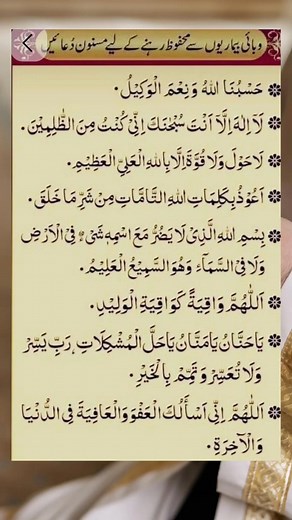 وبائی بیماریوں سے محفوظ رہنے کے لیے مسنون دُعائیں
حَسْبُنَا اللهُ وَنِعْمَ الْوَكِيْلُ.
لَآ اِلٰهَ اِلَّآ اَنْتَ سُبْحٰنَكَ اِنِّيْ كُنْتُ مِنَ الظّٰلِمِيْنَ.
لَا حَوْلَ وَلَا قُوَّةَ اِلَّا بِاللهِ الْعَلِيِّ الْعَظِيْمِ.
اَعُوْذُ بِكَلِمَاتِ اللهِ التَّامَّاتِ مِنْ شَرِّ مَا خَلَقَ.
بِسْمِ اللهِ الَّذِيْ لَا يَضُرُّ مَعَ اسْمِهٖ شَيْءٌ فِي الْاَرْضِ
وَلَا فِي السَّمَآءِ وَهُوَ السَّمِيْعُ الْعَلِيْمُ.
اَللّٰهُمَّ وَاقِيَةً كَوَاقِيَةِ الْوَلِيْدِ.
يَاحَنَّانُ يَامَنَّانُ يَاحَلَّ الْمُشْكِلَاتِ، رَبِّ يَسِّرْ
وَلَا تُعَسِّرْ وَتَمِّمْ بِالْخَيْرِ.
اَللّٰهُمَّ اِنِّيْ اَسْأَلُكَ الْعَفْوَ وَالْعَافِيَةَ فِي الدُّنْيَا
وَالْاٰخِرَةِ.